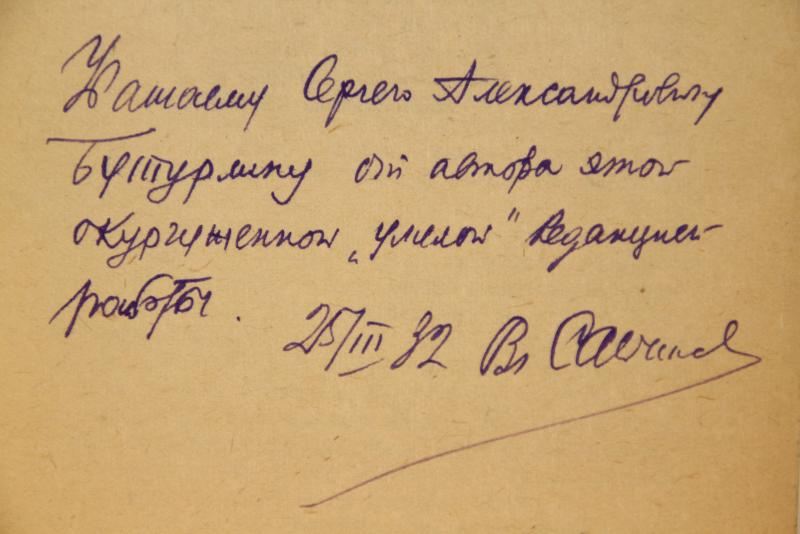 Сергею Александровичу
Бутурлину от автора этой
окургуженной „умелой“ редакцией
работы.
25/III 32 Вл